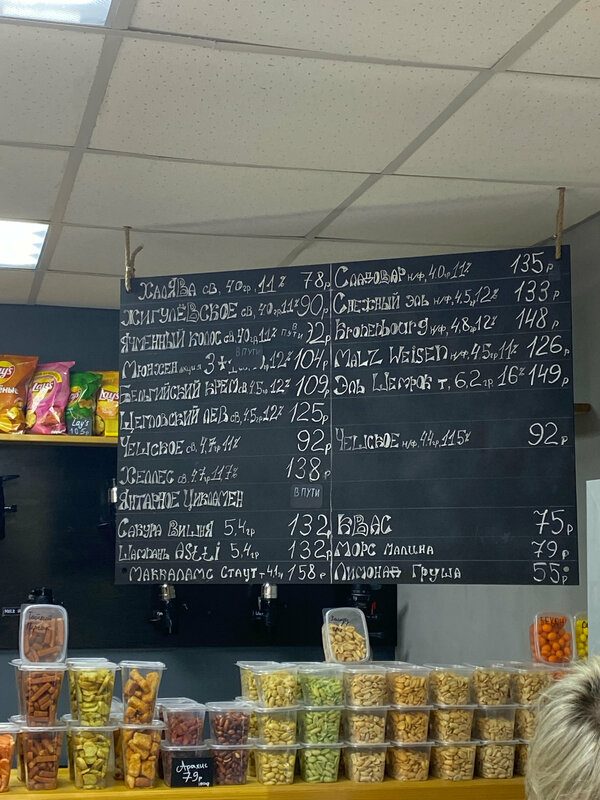 ХАЛЯВА СВ, 4.0 гр, 11% 78р
ЖИГУЛЁВСКОЕ СВ, 4.0 гр 11% 90р
ЯЧМЕННЫЙ КОЛОС СВ, 4.0 гр 11% В ПУТИ 92р
МЮНХЕН 3+1 В ПУТИ 12% 104р
БЕЛЬГИЙСКИЙ КРЕМ 4.5 12% 109р
ШЕПОВСКИЙ ЛЕВ СВ, 4.5 гр 12% 125р
ЧЕШСКОЕ СВ. 4.7 гр 11% 92р
ХЕЛЛЕС СВ. 4.7 гр 11% 138р
ЯНТАРНОЕ ЦИКЛАМЕН В ПУТИ
САКУРА ВИШНЯ 5,4 гр 132р
ШАМПАНЬ ASTTI 5,4 гр 132р
МАККАЛАМС СТАУТ Т 4.1 158р
СЛАДОВАР Н/Ф, 4.0 гр 11% 135р
СНЕЖНЫЙ ЭЛЬ Н/Ф, 4.5 гр 12% 133р
Kronenbourg Н/Ф, 4.8 гр 12% 148р
MALZ WEISEN Н/Ф, 4.5 гр 11% 126р
ЭЛЬ ШЕМРОК Т, 6,2 гр 16% 149р
ЧЕШСКОЕ Н/Ф, 4.4 гр 11.5% 92р
КВАС 75р
МОРС МАЛИНА 79р
ЛИМОНАД ГРУША 55р
Lay's
Lay's
Lay's
Lay's
Lay's
105р
БЕКОН
Арахис
79р
100гр